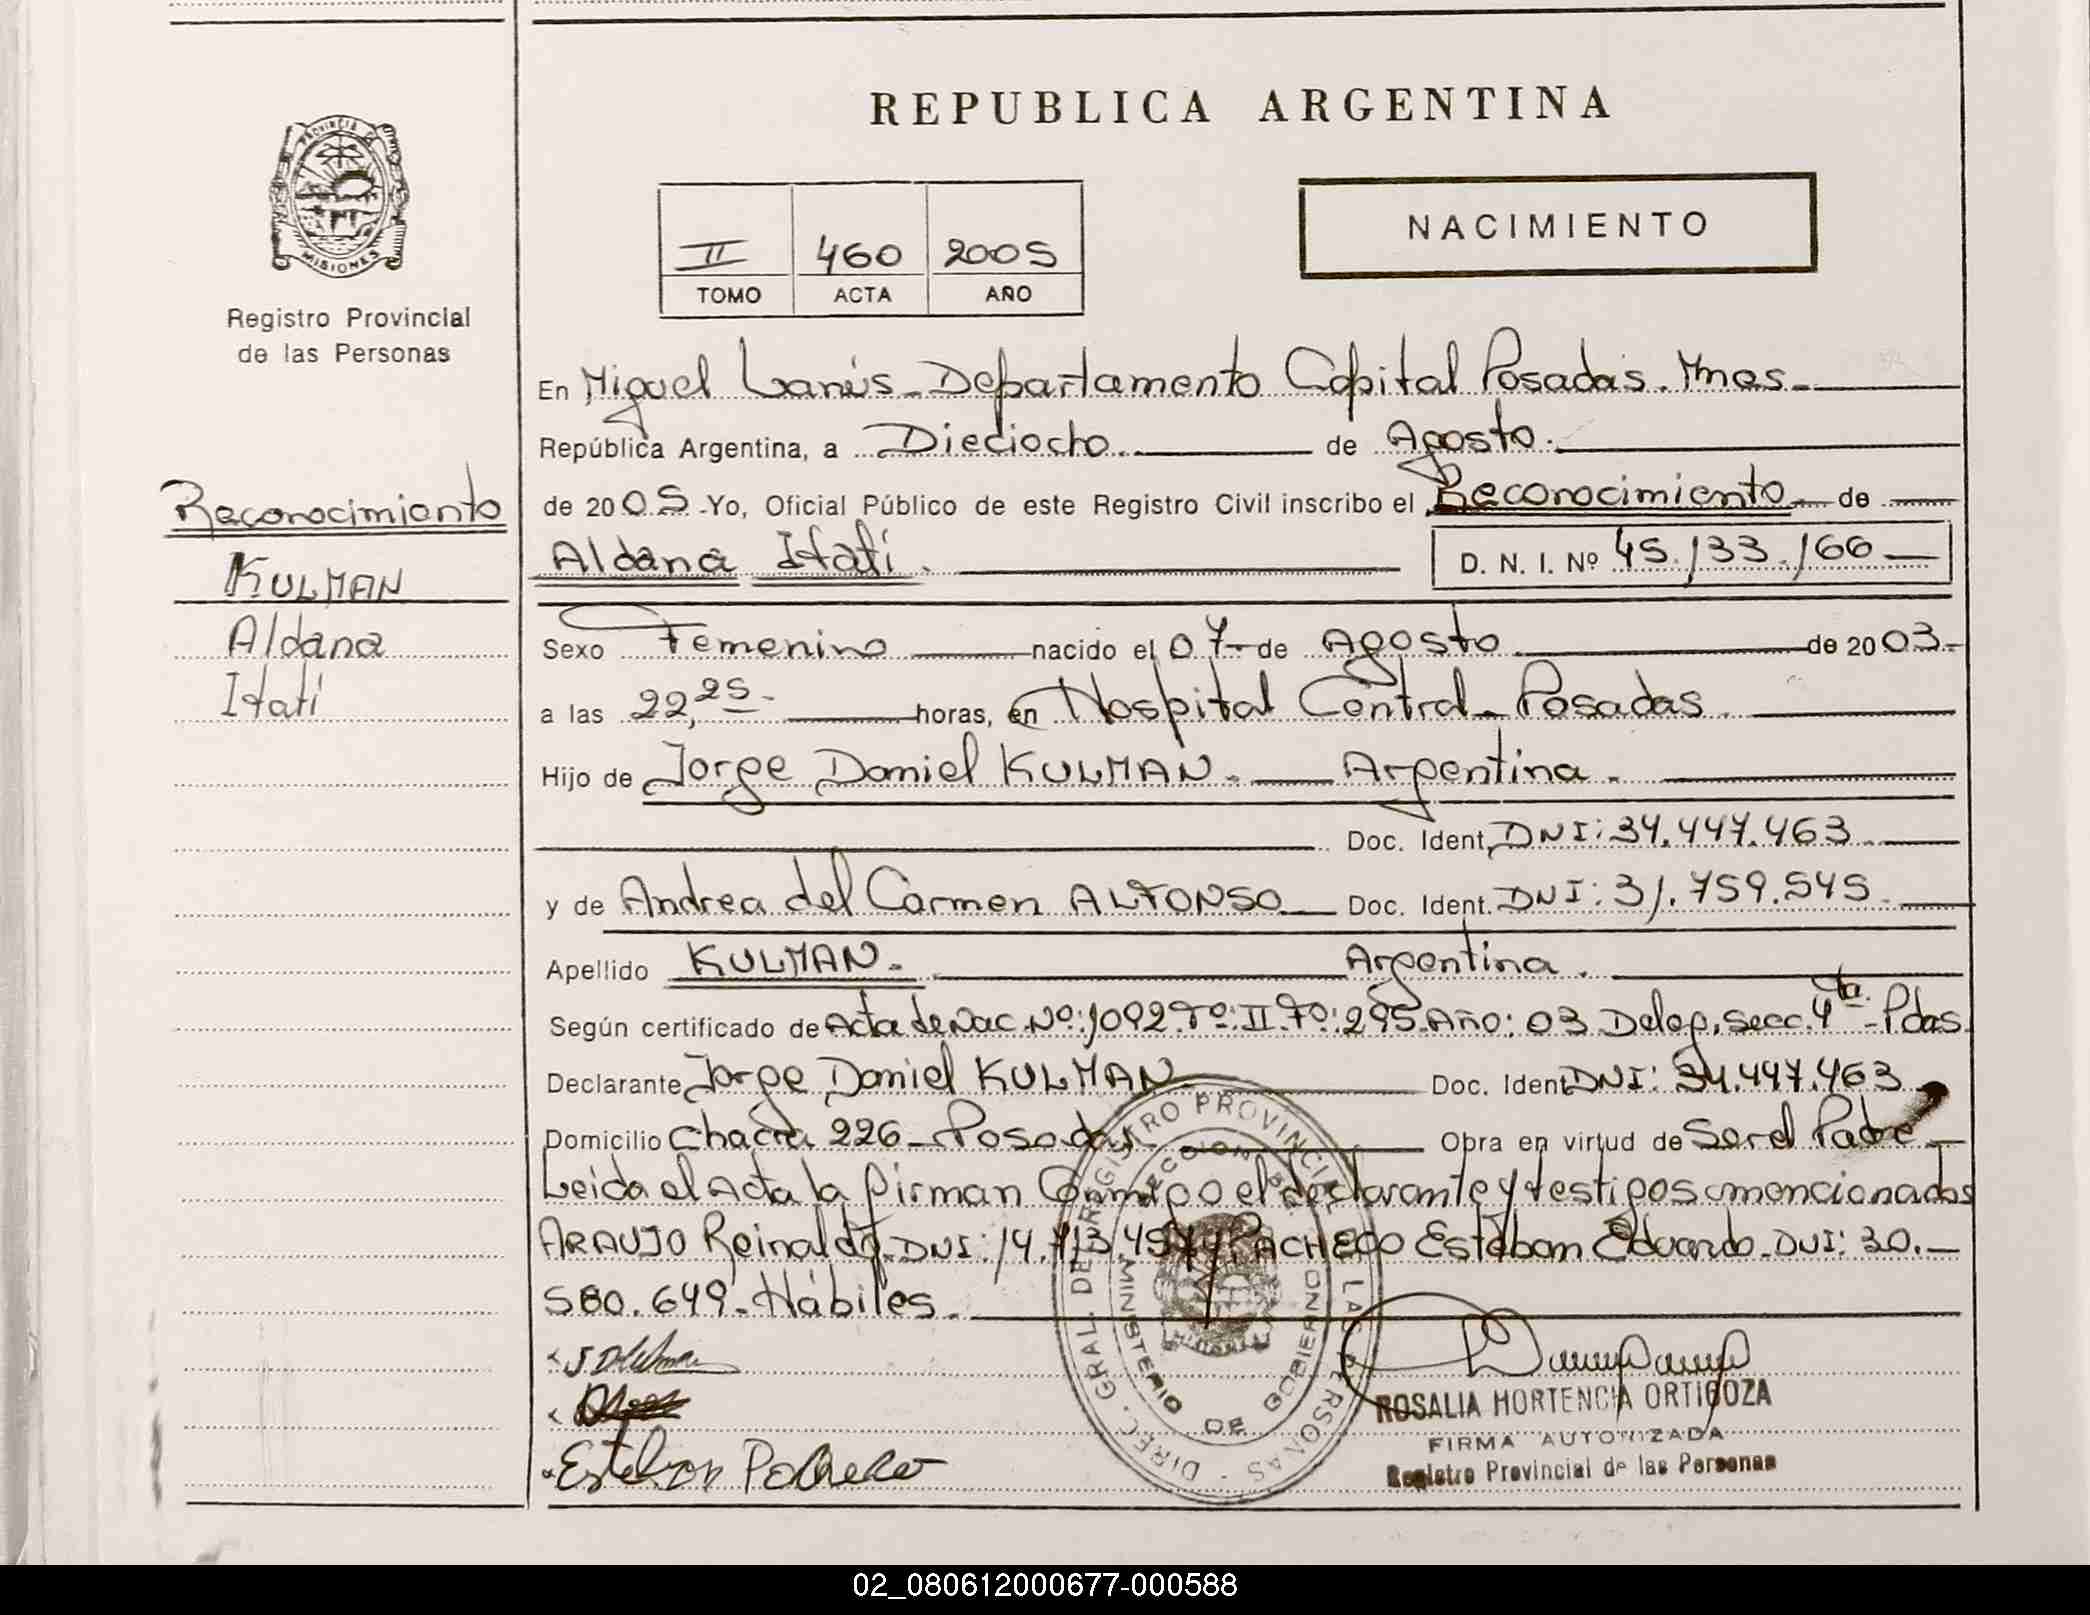 REPUBLICA ARGENTINA
NACIMIENTO
II 460 2005
TOMO ACTA AÑO
PROVINCIA DE
MISIONES
Registro Provincial
de las Personas
Reconocimiento
KULMAN
Aldana
Itatí
En Miguel Lanús - Departamento Capital Posadas. Mnes.
República Argentina, a Dieciocho. de Agosto.
de 2005 - Yo, Oficial Público de este Registro Civil inscribo el Reconocimiento de
Aldana Itatí. D. N. I. Nº 45.133.166
Sexo Femenino nacido el 07 de Agosto de 2003.
a las 22,25 horas, en Hospital Central - Posadas.
Hijo de Jorge Daniel KULMAN. Argentina.
Doc. Ident. DNI: 34.447.463
y de Andrea del Carmen ALFONSO Doc. Ident. DNI: 31.759.545
Apellido KULMAN. Argentina.
Según certificado de Acta de Nac. Nº: 1092 Tº: II Fº: 295 Año: 03 Deleg. Secc. 4ta - Pdas.
Declarante Jorge Daniel KULMAN Doc. Ident DNI: 34.447.463
Domicilio Chacra 226 - Posadas Obra en virtud de Ser el Padre
Leida el Acta la firman Conmigo el declarante y testigos mencionados
ARAUJO Reinaldo. DNI: 14.713.457 y PACHECO Esteban Eduardo. DNI: 30.
580.649 - Hábiles.
Esteban Pacheco
DIREC. GRAL. DE REGISTRO PROVINCIAL DE LAS PERSONAS
MINISTERIO DE GOBIERNO
ROSALIA HORTENCIA ORTIGOZA
FIRMA AUTORIZADA
Registro Provincial de las Personas
02_080612000677-000588